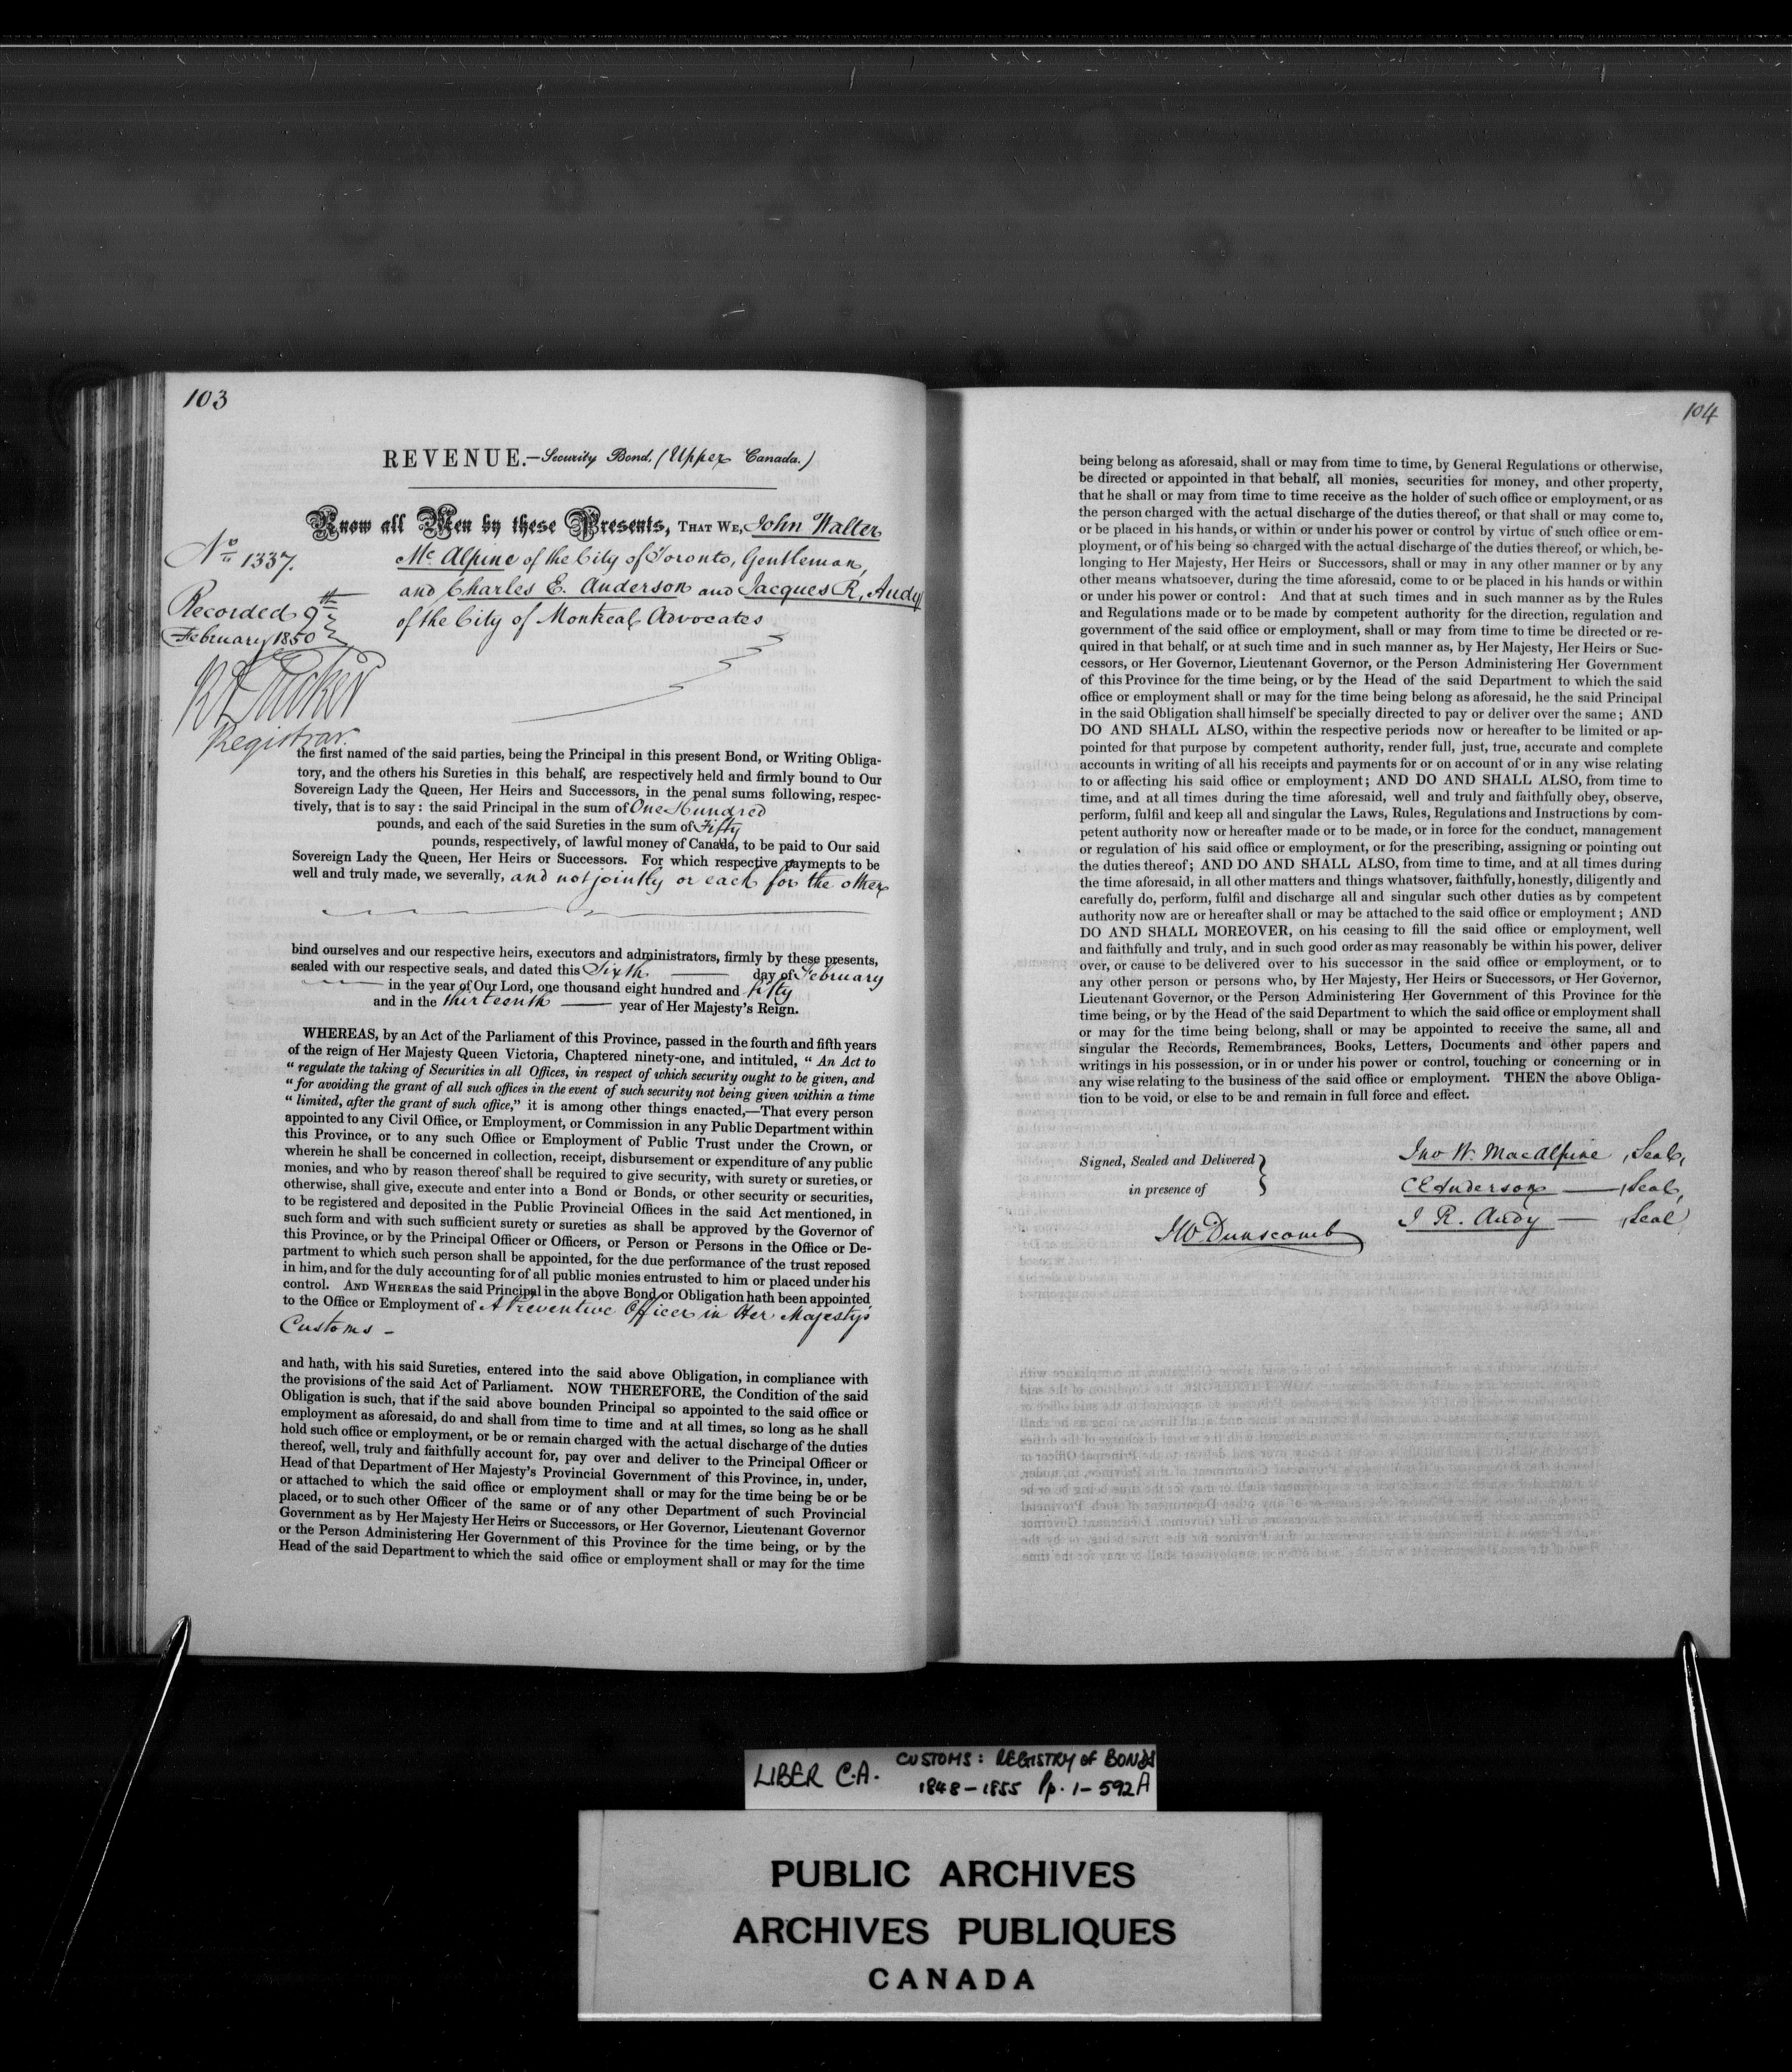 103
REVENUE.—Security Bond. (Upper Canada.)
Know all Men by these Presents, THAT WE, John Walter
Mc Alpine of the City of Toronto, Gentleman,
and Charles E. Anderson and Jacques R. Audy
of the City of Montreal Advocates
No 1337.
Recorded 9th
February 1850
Registrar.
the first named of the said parties, being the Principal in this present Bond, or Writing Obliga-
tory, and the others his Sureties in this behalf, are respectively held and firmly bound to Our
Sovereign Lady the Queen, Her Heirs and Successors, in the penal sums following, respec-
tively, that is to say: the said Principal in the sum of One Hundred
pounds, and each of the said Sureties in the sum of Fifty
pounds, respectively, of lawful money of Canada, to be paid to Our said
Sovereign Lady the Queen, Her Heirs or Successors. For which respective payments to be
well and truly made, we severally, and not jointly or each for the other
bind ourselves and our respective heirs, executors and administrators, firmly by these presents,
sealed with our respective seals, and dated this Sixth —— day of February
—— in the year of Our Lord, one thousand eight hundred and fifty
and in the thirteenth —— year of Her Majesty's Reign.
WHEREAS, by an Act of the Parliament of this Province, passed in the fourth and fifth years
of the reign of Her Majesty Queen Victoria, Chaptered ninety-one, and intituled, " An Act to
" regulate the taking of Securities in all Offices, in respect of which security ought to be given, and
" for avoiding the grant of all such offices in the event of such security not being given within a time
" limited, after the grant of such office," it is among other things enacted,—That every person
appointed to any Civil Office, or Employment, or Commission in any Public Department within
this Province, or to any such Office or Employment of Public Trust under the Crown, or
wherein he shall be concerned in collection, receipt, disbursement or expenditure of any public
monies, and who by reason thereof shall be required to give security, with surety or sureties, or
otherwise, shall give, execute and enter into a Bond or Bonds, or other security or securities,
to be registered and deposited in the Public Provincial Offices in the said Act mentioned, in
such form and with such sufficient surety or sureties as shall be approved by the Governor of
this Province, or by the Principal Officer or Officers, or Person or Persons in the Office or De-
partment to which such person shall be appointed, for the due performance of the trust reposed
in him, and for the duly accounting for of all public monies entrusted to him or placed under his
control. AND WHEREAS the said Principal in the above Bond or Obligation hath been appointed
to the Office or Employment of A Preventive Officer in Her Majesty's
Customs -
and hath, with his said Sureties, entered into the said above Obligation, in compliance with
the provisions of the said Act of Parliament. NOW THEREFORE, the Condition of the said
Obligation is such, that if the said above bounden Principal so appointed to the said office or
employment as aforesaid, do and shall from time to time and at all times, so long as he shall
hold such office or employment, or be or remain charged with the actual discharge of the duties
thereof, well, truly and faithfully account for, pay over and deliver to the Principal Officer or
Head of that Department of Her Majesty's Provincial Government of this Province, in, under,
or attached to which the said office or employment shall or may for the time being be or be
placed, or to such other Officer of the same or of any other Department of such Provincial
Government as by Her Majesty Her Heirs or Successors, or Her Governor, Lieutenant Governor
or the Person Administering Her Government of this Province for the time being, or by the
Head of the said Department to which the said office or employment shall or may for the time
104
being belong as aforesaid, shall or may from time to time, by General Regulations or otherwise,
be directed or appointed in that behalf, all monies, securities for money, and other property,
that he shall or may from time to time receive as the holder of such office or employment, or as
the person charged with the actual discharge of the duties thereof, or that shall or may come to,
or be placed in his hands, or within or under his power or control by virtue of such office or em-
ployment, or of his being so charged with the actual discharge of the duties thereof, or which, be-
longing to Her Majesty, Her Heirs or Successors, shall or may in any other manner or by any
other means whatsoever, during the time aforesaid, come to or be placed in his hands or within
or under his power or control: And that at such times and in such manner as by the Rules
and Regulations made or to be made by competent authority for the direction, regulation and
government of the said office or employment, shall or may from time to time be directed or re-
quired in that behalf, or at such time and in such manner as, by Her Majesty, Her Heirs or Suc-
cessors, or Her Governor, Lieutenant Governor, or the Person Administering Her Government
of this Province for the time being, or by the Head of the said Department to which the said
office or employment shall or may for the time being belong as aforesaid, he the said Principal
in the said Obligation shall himself be specially directed to pay or deliver over the same; AND
DO AND SHALL ALSO, within the respective periods now or hereafter to be limited or ap-
pointed for that purpose by competent authority, render full, just, true, accurate and complete
accounts in writing of all his receipts and payments for or on account of or in any wise relating
to or affecting his said office or employment; AND DO AND SHALL ALSO, from time to
time, and at all times during the time aforesaid, well and truly and faithfully obey, observe,
perform, fulfil and keep all and singular the Laws, Rules, Regulations and Instructions by com-
petent authority now or hereafter made or to be made, or in force for the conduct, management
or regulation of his said office or employment, or for the prescribing, assigning or pointing out
the duties thereof; AND DO AND SHALL ALSO, from time to time, and at all times during
the time aforesaid, in all other matters and things whatsover, faithfully, honestly, diligently and
carefully do, perform, fulfil and discharge all and singular such other duties as by competent
authority now are or hereafter shall or may be attached to the said office or employment; AND
DO AND SHALL MOREOVER, on his ceasing to fill the said office or employment, well
and faithfully and truly, and in such good order as may reasonably be within his power, deliver
over, or cause to be delivered over to his successor in the said office or employment, or to
any other person or persons who, by Her Majesty, Her Heirs or Successors, or Her Governor,
Lieutenant Governor, or the Person Administering Her Government of this Province for the
time being, or by the Head of the said Department to which the said office or employment shall
or may for the time being belong, shall or may be appointed to receive the same, all and
singular the Records, Remembrances, Books, Letters, Documents and other papers and
writings in his possession, or in or under his power or control, touching or concerning or in
any wise relating to the business of the said office or employment. THEN the above Obliga-
tion to be void, or else to be and remain in full force and effect.
Signed, Sealed and Delivered
in presence of
JW Dunscomb
Jno W. MacAlpine (Seal)
C E Anderson —— (Seal)
J R. Audy —— (Seal)
LIBER C.A. CUSTOMS: REGISTRY OF BONDS
1848-1855 Pp. 1-592A
PUBLIC ARCHIVES
ARCHIVES PUBLIQUES
CANADA